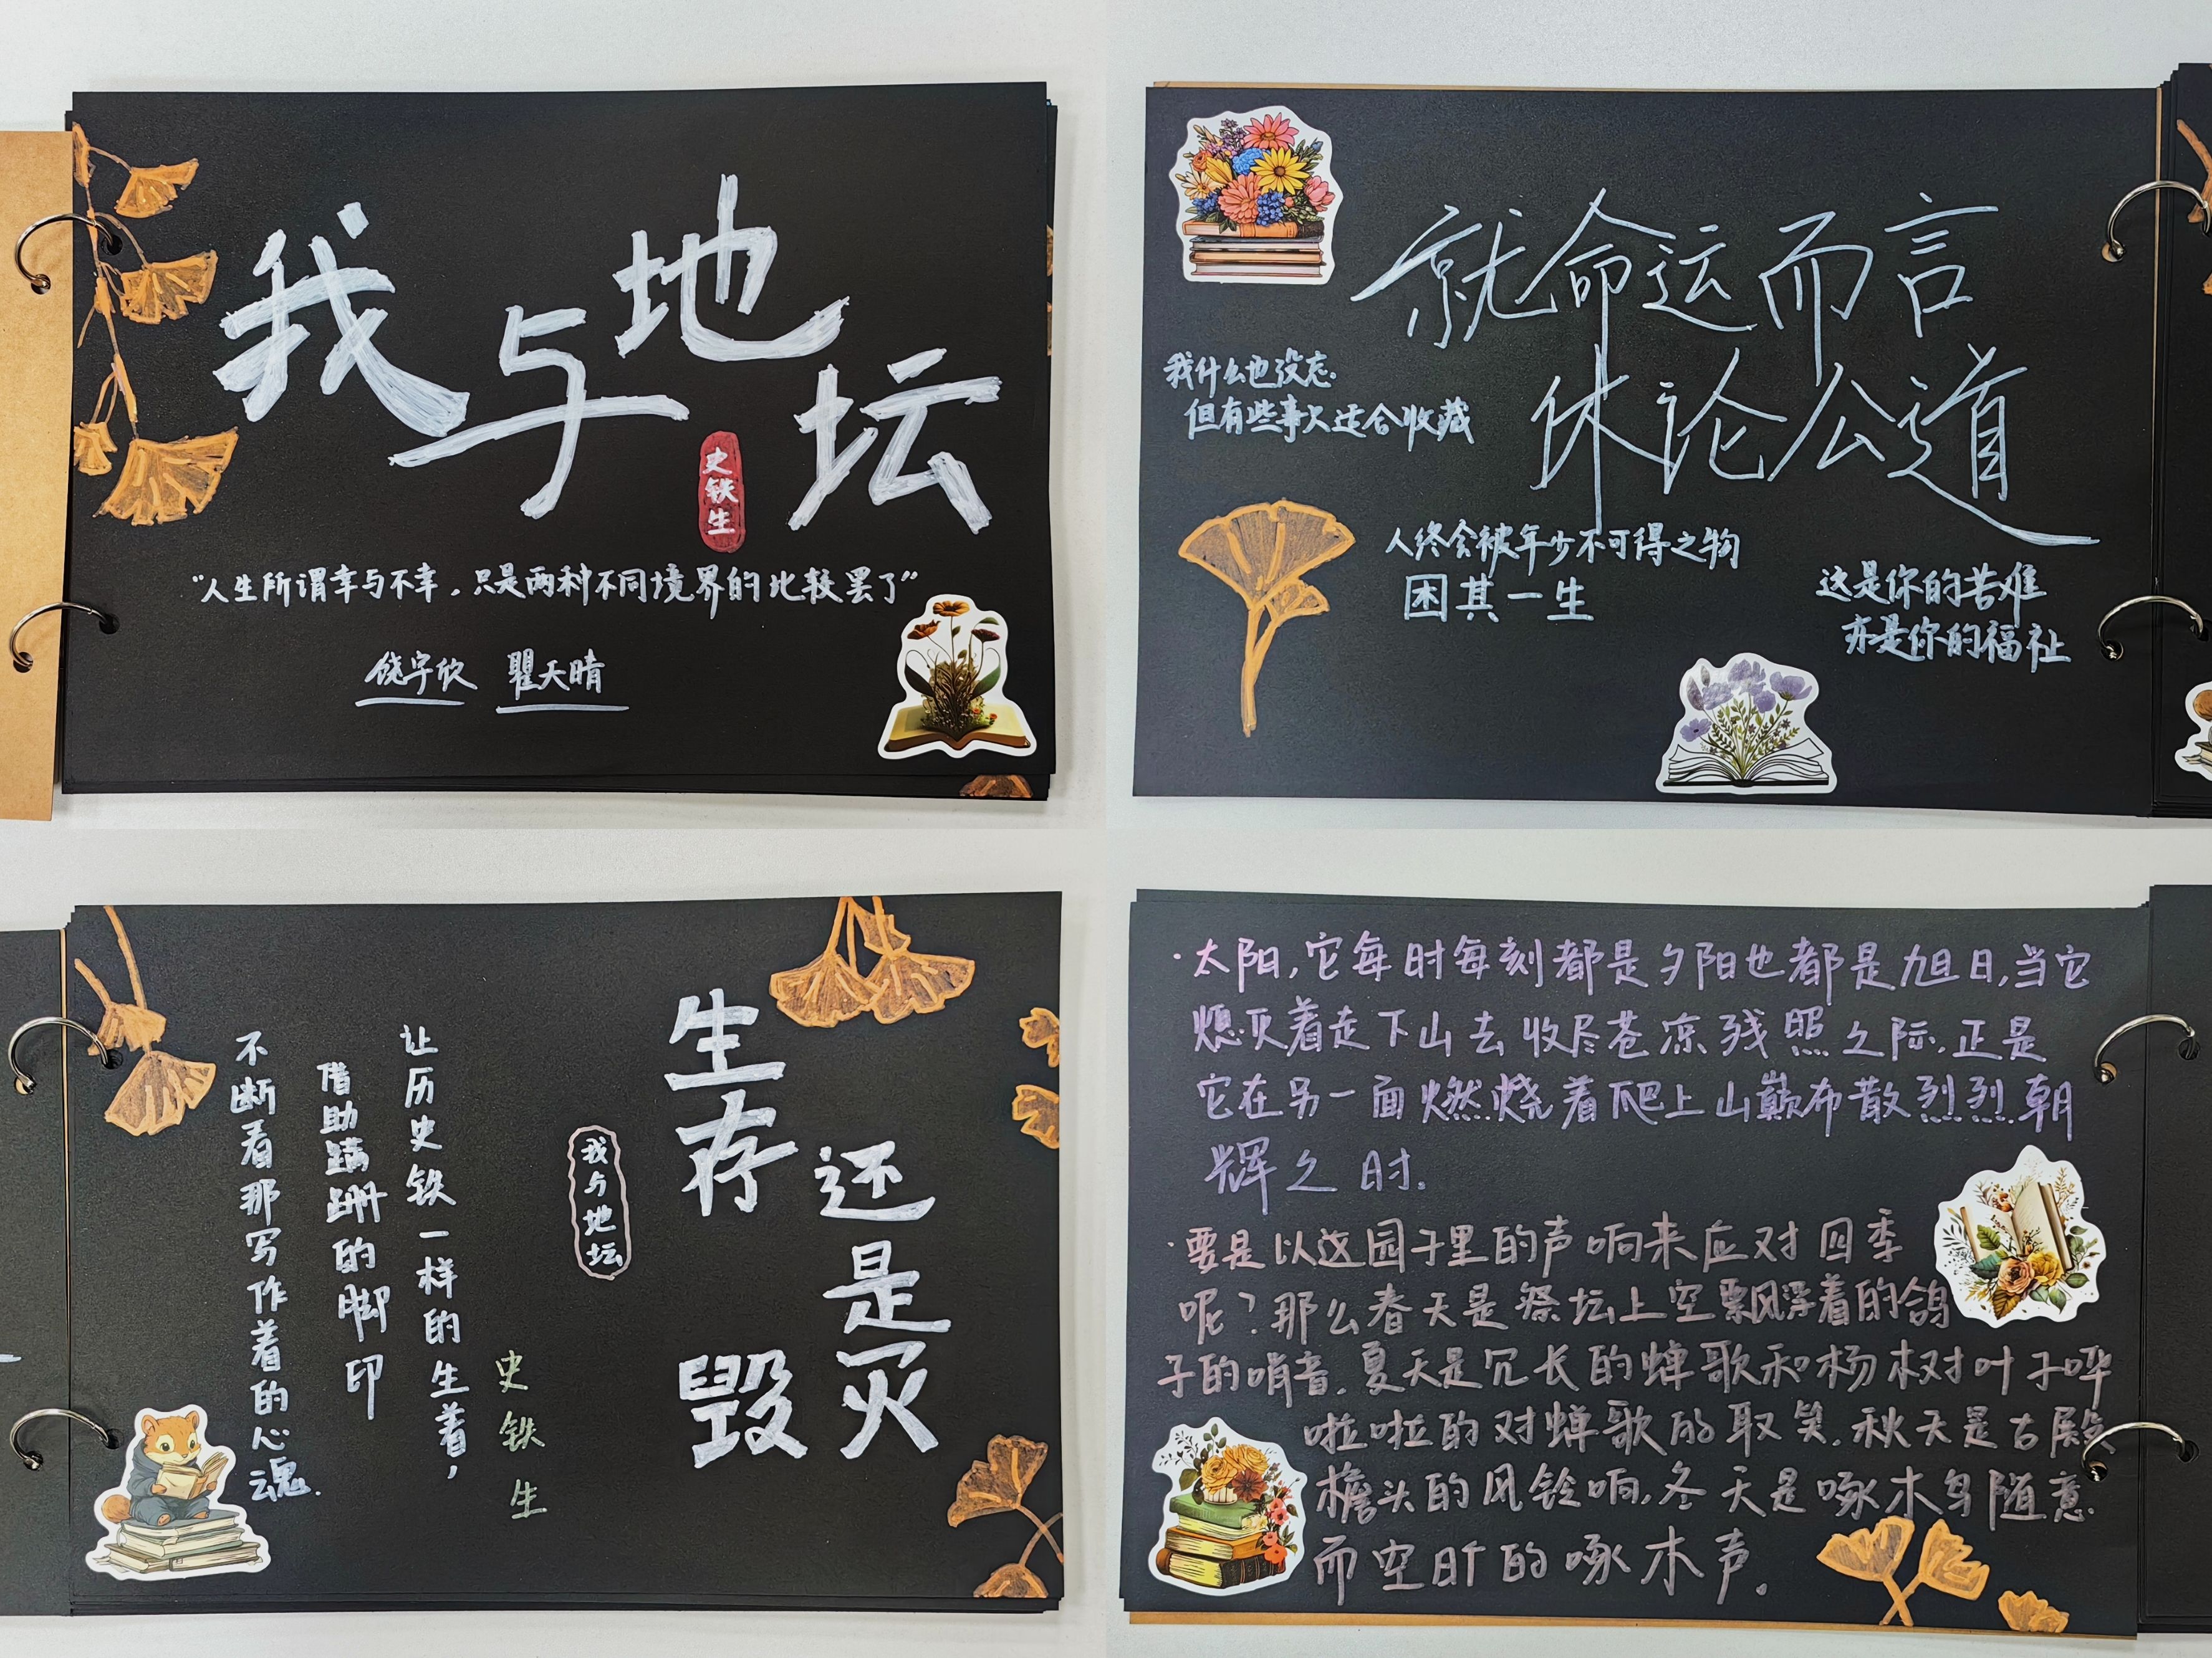 我与地坛
史铁生
“人生所谓幸与不幸，只是两种不同境界的比较罢了”
饶宇欣 瞿天晴
就命运而言
休论公道
我什么也没忘.
但有些事只适合收藏
人终会被年少不可得之物
困其一生
这是你的苦难
亦是你的福祉
生存
还是灭
毁
我与地坛
史铁生
让历史铁一样的生着，
借助蹒跚的脚印
不断看那写作着的心魂.
·太阳,它每时每刻都是夕阳也都是旭日,当它
熄灭着走下山去收尽苍凉残照之际,正是
它在另一面燃烧着爬上山巅布散烈烈朝
辉之时.
·要是以这园子里的声响来应对四季
呢？那么春天是祭坛上空飘浮着的鸽
子的哨音,夏天是冗长的蝉歌和杨树叶子哗
啦啦的对蝉歌的取笑,秋天是古殿
檐头的风铃响,冬天是啄木鸟随意
而空旷的啄木声。